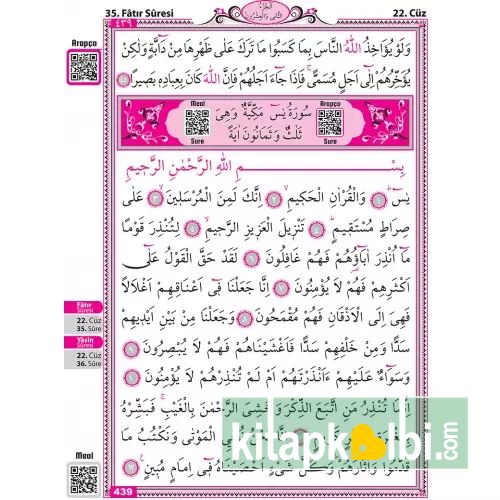 35. Fâtır Sûresi
الجزء الثاني والعشرون
22. Cüz
٤٣٩
Arapça
وَلَوْ يُؤَاخِذُ اللّٰهُ النَّاسَ بِمَا كَسَبُوا مَا تَرَكَ عَلٰى ظَهْرِهَا مِنْ دَٓابَّةٍ وَلٰكِنْ
يُؤَخِّرُهُمْ اِلٰٓى اَجَلٍ مُسَمًّىۚ فَاِذَا جَٓاءَ اَجَلُهُمْ فَاِنَّ اللّٰهَ كَانَ بِعِبَادِه۪ بَص۪يرًا
Meal
Arapça
سُورَةُ يٰسٓ مَكِّيَّةٌ وَهِيَ
ثَلٰثٌ وَثَمَانُونَ اٰيَةً
Sure
Sure
بِسْمِ اللّٰهِ الرَّحْمٰنِ الرَّح۪يمِ
يٰسٓۜ ﴿١﴾ وَالْقُرْاٰنِ الْحَك۪يمِۙ ﴿٢﴾ اِنَّكَ لَمِنَ الْمُرْسَل۪ينَۙ ﴿٣﴾ عَلٰى
صِرَاطٍ مُسْتَق۪يمٍۜ ﴿٤﴾ تَنْز۪يلَ الْعَز۪يزِ الرَّح۪يمِۙ ﴿٥﴾ لِتُنْذِرَ قَوْمًا
مَٓا اُنْذِرَ اٰبَٓاؤُ۬هُمْ فَهُمْ غَافِلُونَ ﴿٦﴾ لَقَدْ حَقَّ الْقَوْلُ عَلٰٓى
اَكْثَرِهِمْ فَهُمْ لَا يُؤْمِنُونَ ﴿٧﴾ اِنَّا جَعَلْنَا ف۪ٓي اَعْنَاقِهِمْ اَغْلَالًا
فَهِيَ اِلَى الْاَذْقَانِ فَهُمْ مُقْمَحُونَ ﴿٨﴾ وَجَعَلْنَا مِنْ بَيْنِ اَيْد۪يهِمْ
سَدًّا وَمِنْ خَلْفِهِمْ سَدًّا فَاَغْشَيْنَاهُمْ فَهُمْ لَا يُبْصِرُونَ ﴿٩﴾
وَسَوَٓاءٌ عَلَيْهِمْ ءَاَنْذَرْتَهُمْ اَمْ لَمْ تُنْذِرْهُمْ لَا يُؤْمِنُونَ ﴿١٠﴾
اِنَّمَا تُنْذِرُ مَنِ اتَّبَعَ الذِّكْرَ وَخَشِيَ الرَّحْمٰنَ بِالْغَيْبِۚ فَبَشِّرْهُ
بِمَغْفِرَةٍ نُحْيِ الْمَوْتٰى وَنَكْتُبُ مَا
قَدَّمُوا وَاٰثَارَهُمْۜ وَكُلَّ شَيْءٍ اَحْصَيْنَاهُ ف۪ٓي اِمَامٍ مُب۪ينٍ۟ ﴿١٢﴾
Fâtır
Sûresi
22. Cüz
35. Sûre
Yâsin
Sûresi
22. Cüz
36. Sûre
Meal
439
kitapkalbi.com